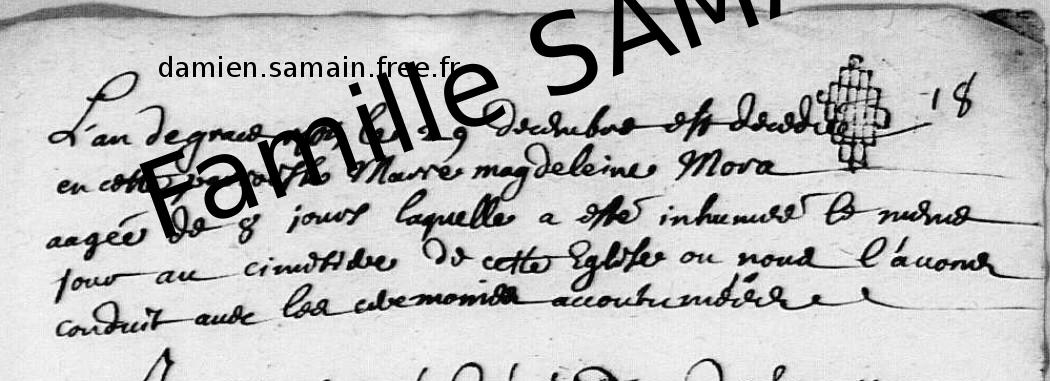 damien.samain.free.fr
Famille SAMA
18
L'an de grace le 29 decembre est decedée
en cette paroisse Marie magdeleine Mora
aagée de 8 jours laquelle a esté inhumée le meme
jour au cimitiere de cette Eglise ou nous l'avons
conduit avec les ceremonies accoutumées